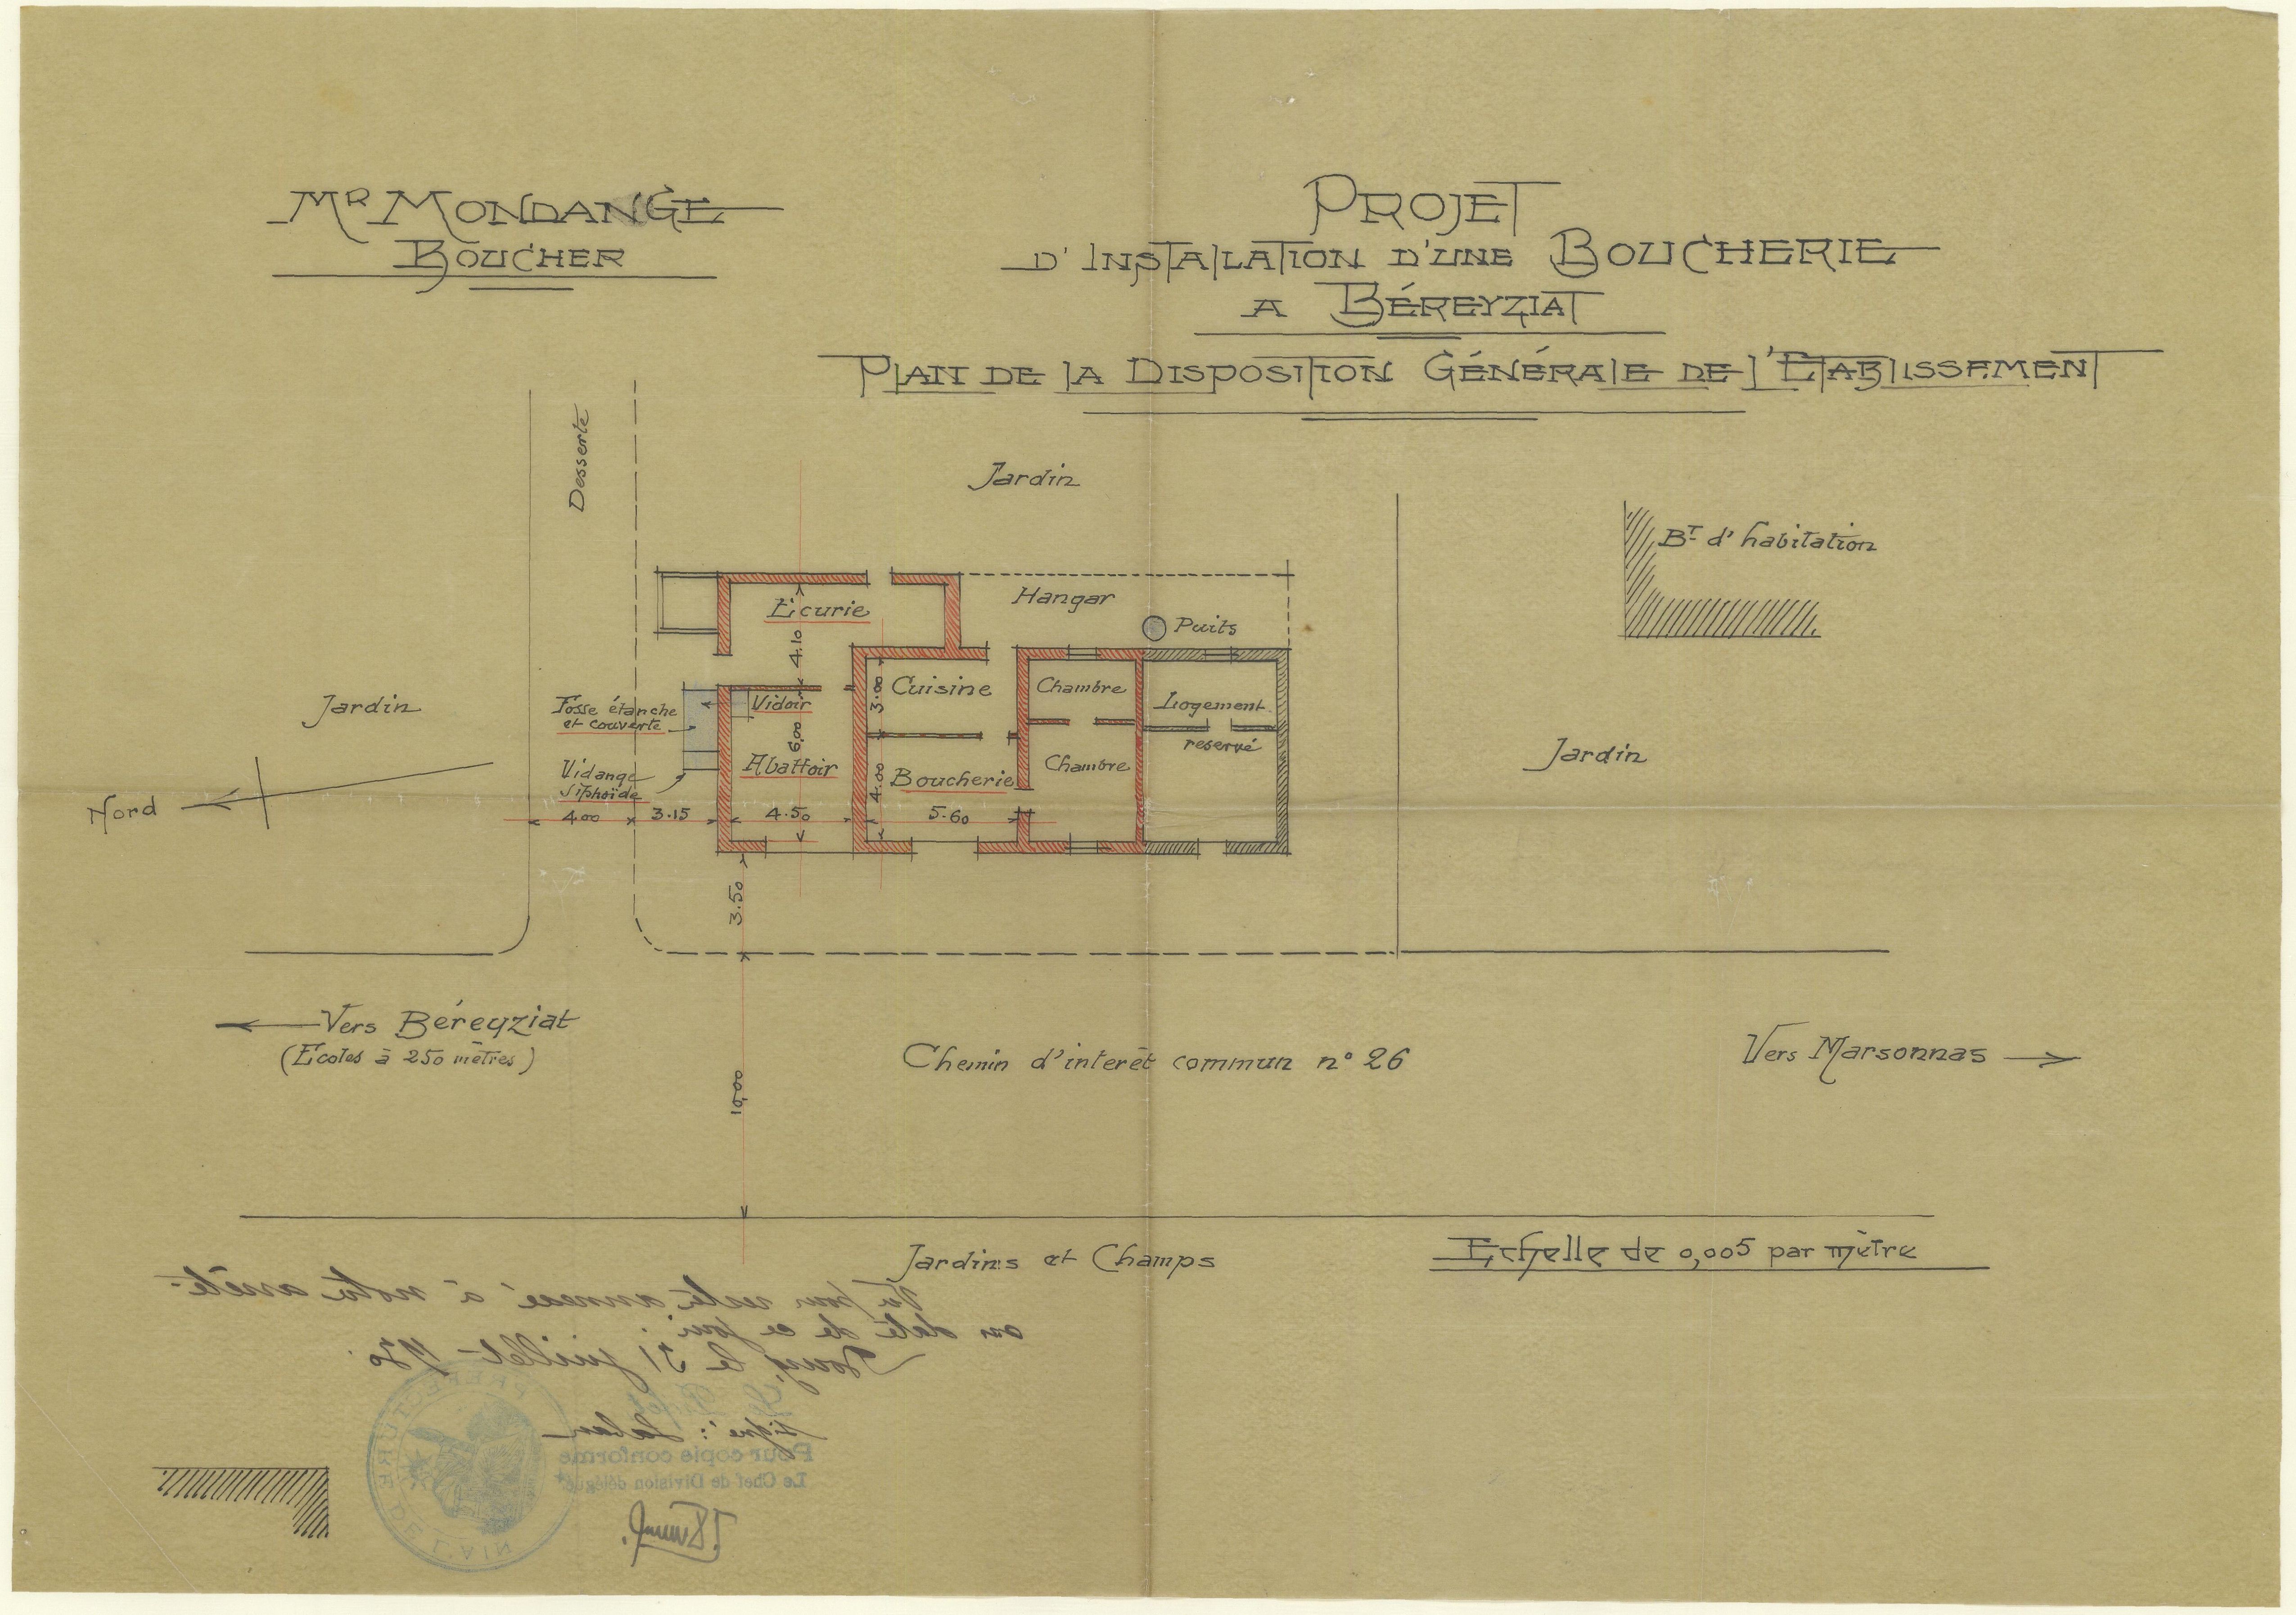 MR MONDANGE
BOUCHER
PROJET
D'INSTALLATION D'UNE BOUCHERIE
A BÉREYZIAT
PLAN DE LA DISPOSITION GÉNÉRALE DE L'ETABLISSEMENT
Desserte
Jardin
BT d'habitation
Ecurie
Hangar
Puits
4.10
Jardin
Fosse étanche
et couverte
Vidoir
3.00
Cuisine
Chambre
Logement
reservé
6.00
Vidange
Siphoïde
Abattoir
4.00
Boucherie
Chambre
Jardin
Nord
4.00
3.15
4.50
5.60
3.50
Vers Béreyziat
(Ecoles à 250 mètres)
Chemin d'interêt commun n° 26
Vers Marsonnas
10,00
Jardins et Champs
Echelle de 0,005 par mètre
Vu pour rester annexé à notre arrêté
en date de ce jour.
Bourg, le 31 juillet 1930
Le Préfet
signé:
Pour copie conforme
Le Chef de Division délégué
PREFECTURE DE L'AIN